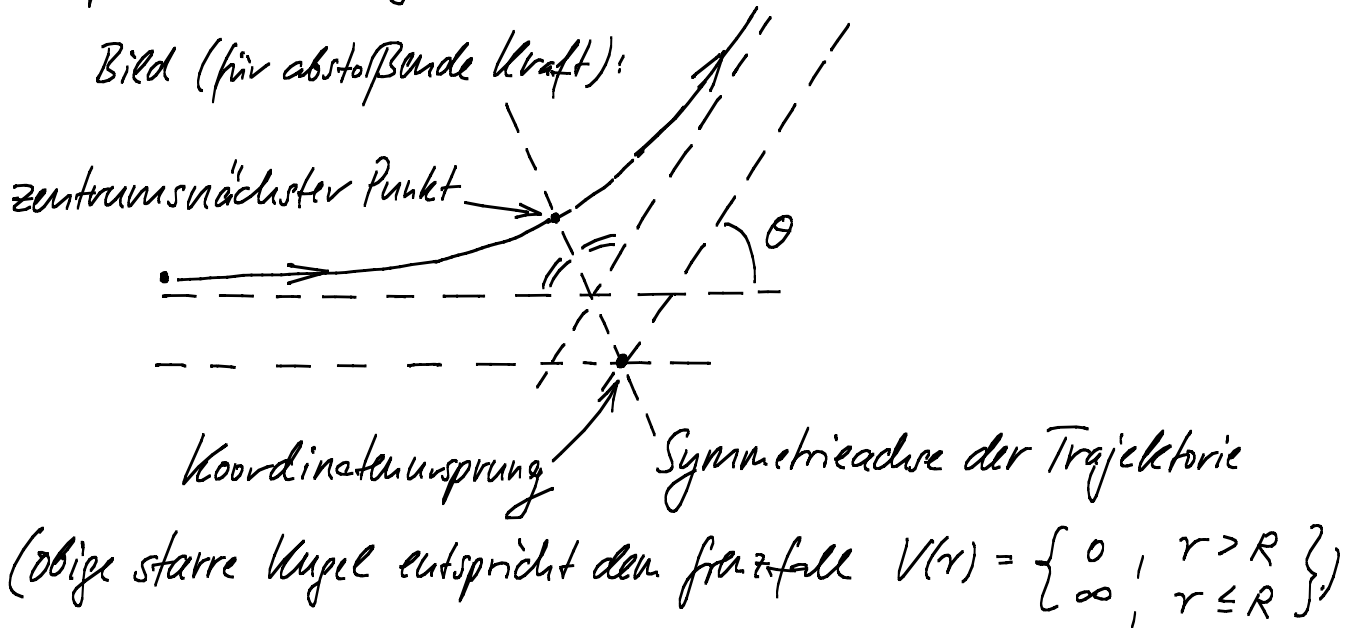 Bild (für abstoßende Kraft):
zentrumsnächster Punkt
θ
Koordinatenursprung
Symmetrieachse der Trajektorie
(obige starre Kugel entspricht dem Grenzfall V(r) = { 0 , r > R
∞ , r ≤ R }.)